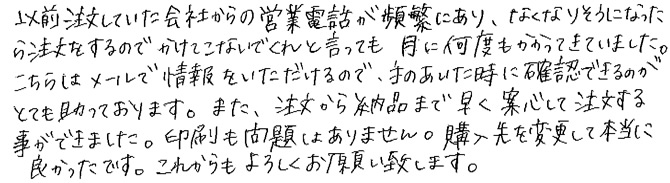 以前注文していた会社からの営業電話が頻繁にあり、なくなりそうになった
ら注文をするのでかけてこないでくれと言っても 月に何度もかかってきていました。
こちらはメールで情報をいただけるので、手のあいた時に確認できるのが
とても助かっております。また、注文から納品まで早く案心して注文する
事ができました。印刷も問題はありません。購入先を変更して本当に
良かったです。これからもよろしくお願い致します。